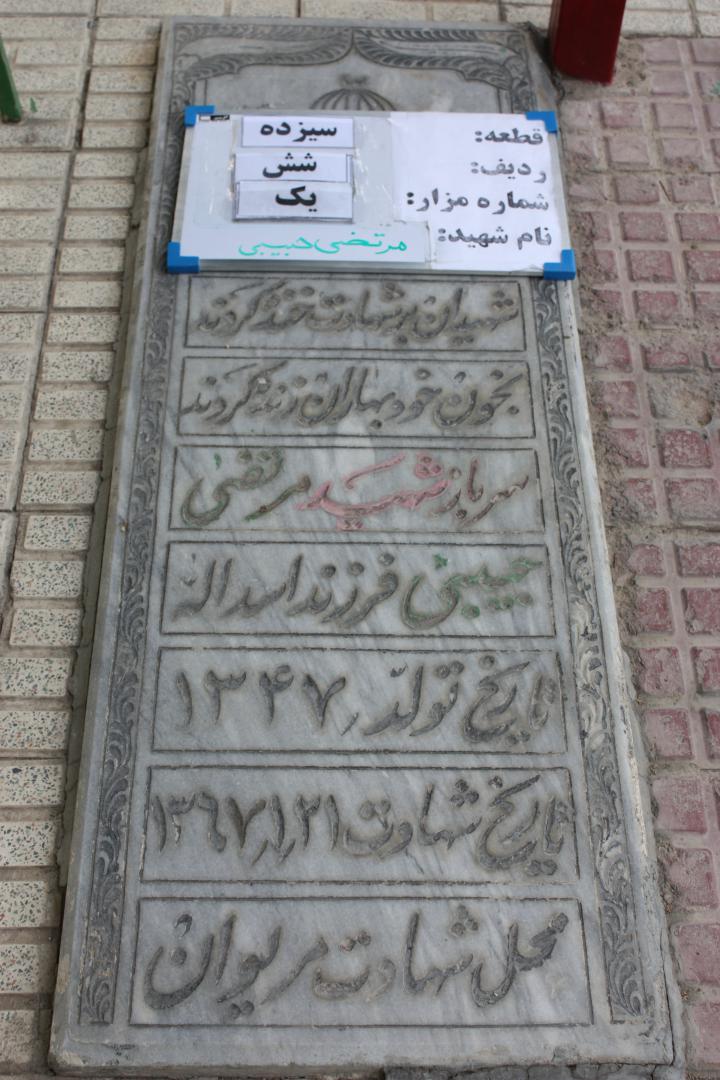 قطعه: سیزده
ردیف: شش
شماره مزار: یک
نام شهید: مرتضی حبیبی
شهیدان بر شهادت خنده کردند
بخون خود بهاران زنده کردند
سرباز شهید مرتضی
حبیبی فرزند اسداله
تاریخ تولد ۱۳۴۷
تاریخ شهادت ۱۳۶۷/۱/۲۱
محل شهادت مریوان